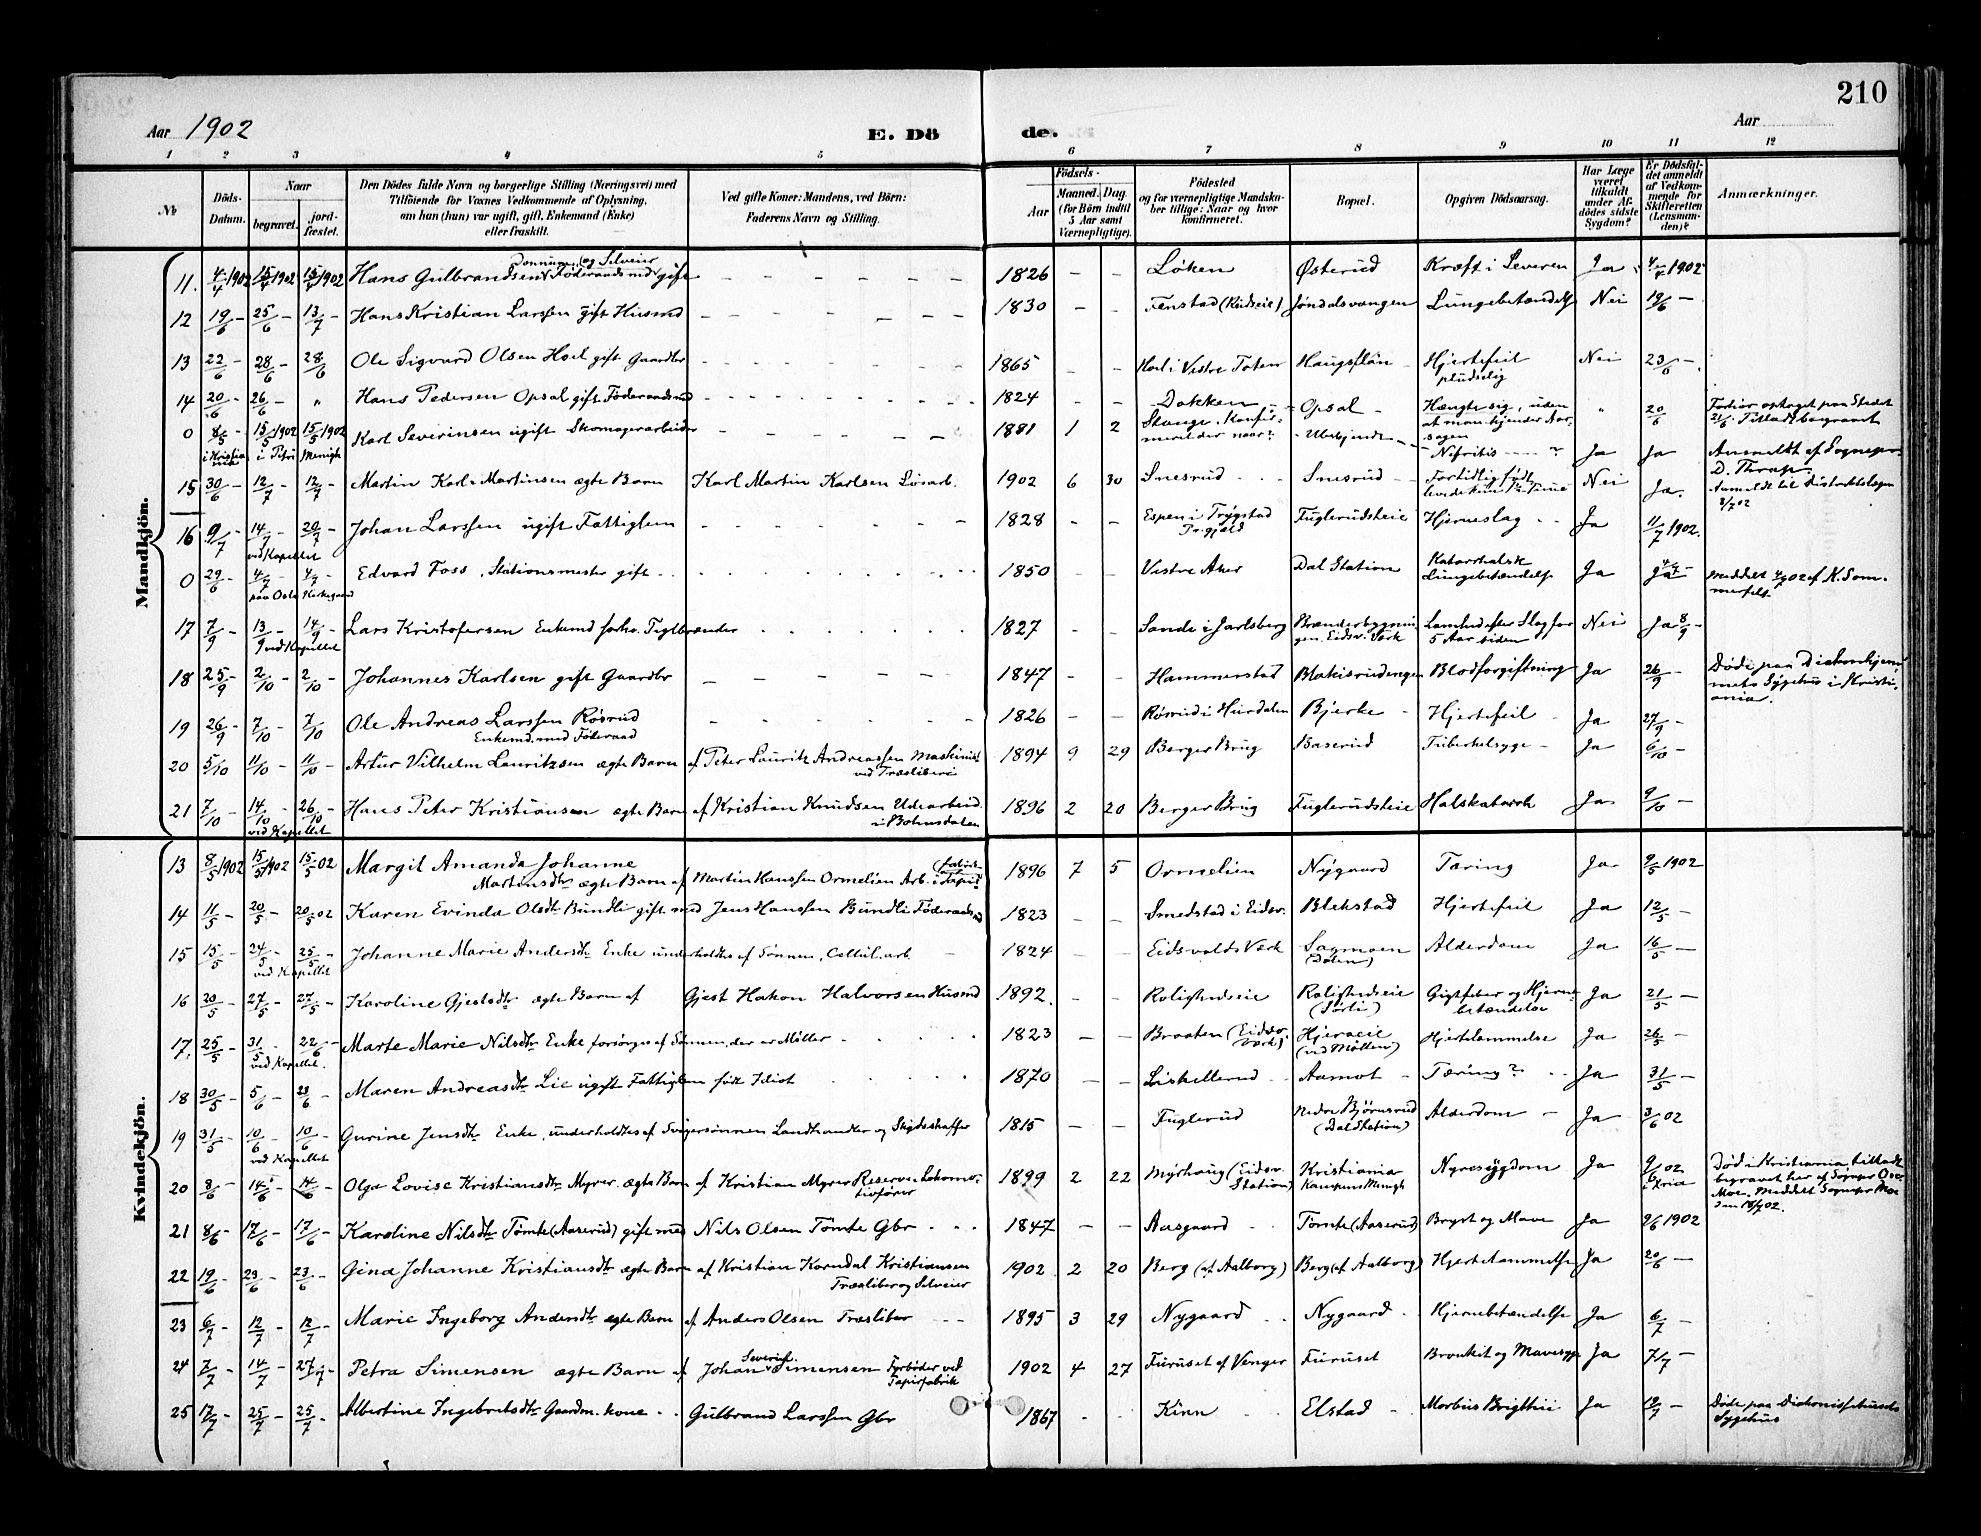 210
Aar 1902 E. Dö de. Aar
1 2 3 4 5 6 7 8 9 10 11 12
№
Döds-Datum.
Naar
begravet.
jord-fæstet.
Den Dödes fulde Navn og borgerlige Stilling (Næringsvei) med
Tilföiende for Voxnes Vedkommende af Oplysning,
om han (hun) var ugift, gift, Enkemand (Enke)
eller fraskilt.
Ved gifte Koner: Mandens, ved Börn:
Faderens Navn og Stilling.
Födsels-
Aar
Maaned. Dag.
(for Börn indtil
5 Aar samt
Værnepligtige).
Födested
og for værnepligtige Mandska-
ber tillige: Naar og hvor
konfirmeret.
Bopæl.
Opgiven Dödsaarsag.
Har Læge
været
tilkaldt
under Af-
dödes sidste
Sygdom?
Er Dödsfal-
det anmeldt
af Vedkom-
mende for
Skifteretten
(Lensman-
den)?
Anmærkninger.
Mandkjön.
11. 4/4 1902 15/4 1902 15/4 1902 Hans Gulbrandsen Føderaadsmd gift 1826 Løken Østerud Kræft i Leveren Ja 4/4 1902
12 19/6 25/6 13/7 Hans Kristian Larssen gift Husmd 1830 Fenstad Lungebetændelse Nei 19/6
13 22/6 28/6 28/6 Ole Sigvard Olsen Hoel gift Gaardbr 1865 Hoel i Vestre Toten Hjertefeil pludselig Nei 23/6
14 20/6 26/6 " Hans Pedersen Opsal gift Føderaadsmd 1824 Dokken Opsal Hængte sig, uden at man kjender Aarsagen " 20/6
0 8/5 i Kristiania 15/5 1902 15/5 1902 i Petri Menigh Karl Severinsen ugift Skomagerarbeider 1881 1 2 Stange. Konfirmeret der naar? Ubekjendt Nefritis Ja Ja Anmeldt af Sognepr. D. Thrap.
15 30/6 12/7 12/7 Martin Karl Martinsen ægte Barn Karl Martin Karlsen Løsarb. 1902 6 30 Snesrud Snesrud For tidlig født Nei Ja.
16 9/7 14/7 ved Kapellet 20/7 Johan Larssen ugift Fattiglem 1828 Espen i Trygstad Prgjeld Fuglerudsteie Hjerneslag Ja 11/7 1902.
0 29/6 4/7 4/7 paa Oslo Kirkegaard Edvard Foss, Stationsmester gift 1850 Vestre Aker Dal Station Katarrhalsk Lungebetændelse Ja Ja
17 7/9 13/9 ved Kapellet 14/9 Lars Kristofersen Enkemd forhv. Teglbrænder 1827 Sande i Jarlsberg Brænderbygningen. Eidsv. Værk Lamhed efter Slag for 5 Aar siden Nei Ja 8/9
18 25/9 2/10 2/10 Johannes Karlsen gift Gaardbr 1847 Hammerstad Blodforgiftning Ja 26/9 Døde paa Diakonhjemmets Sygehus i Kristiania.
19 26/9 7/10 7/10 Ole Andreas Larssen Røsrud Enkemd. med Føderaad 1826 Røsrud i Hurdalen Bjerke Hjertefeil Ja 27/9
20 5/10 11/10 11/10 Artur Vilhelm Lauritzsen ægte Barn af Peter Lauritz Andreassen Maskinist ved Træsliberi 1894 9 29 Berger Brug Baserud Tuberkelsyge Ja 6/10
21 7/10 14/10 ved Kapellet 26/10 Hans Peter Kristiansen ægte Barn af Kristian Knudsen Udearbeid. i Bohnsdalen 1896 2 20 Berger Brug Fuglerudsteie Halskatarrh Ja 9/10
Kvindekjön.
13 8/5 1902 15/5 1902 15/5 02 Margit Amanda Johanne Martinsdtr ægte Barn af Martin Hanssen Ormelien Arb. i Papirfabrik 1896 7 5 Ormelien Nygaard Tæring Ja 9/5 1902
14 11/5 20/5 20/5 02 Karen Evinda Olsdtr Bundli gift med Jens Hanssen Bundli Føderaadsmd 1823 Smedstad i Eidsv. Blekstad Hjertefeil Ja 12/5
15 15/5 24/5 ved Kapellet 25/5 Johanne Marie Andersdtr Enke underholdtes af Sønnen, Cellul.arb. 1824 Eidsvolds Værk Sagmoen (Dølen) Alderdom Ja 16/5
16 20/5 27/5 27/5 Karoline Gjestsdtr ægte Barn af Gjest Hakon Halvorsen Husmd 1892. Rolighedseie Rolighedseie (Sørli) Gigtfeber og Hjernebetændelse Ja 21/5
17. 25/5 31/5 ved Kapellet. 22/6 Marte Marie Nilsdtr Enke forsørges af Sønnen, der er Møller 1823 Braaten (Eidsv. Værk) Hjeraeie (ved Møllen) Hjertelammelse Ja 26/5
18 30/5 5/6 23/6 Maren Andreasdtr Lie ugift Fattiglem født Idiot 1870 Liskellerud Aamot Tæring? Ja 31/5
19 31/5 10/6 ved Kapellet 10/6 Gurine Jensdtr Enke, underholdtes af Svigersønnen Landhandler og Skydsskaffer 1815 Fuglerud Nedre Bjørnsrud (Dal Station) Alderdom Ja 3/6 02
20 8/6 14/6 14/6 Olga Lovise Kristiansdtr Myrer ægte Barn af Kristian Myrer Reserve Lokomotivfører 1899 2 22 Myrhaug (Eidsv. Station) Kristiania Kampens Menigh Nyresygdom Ja 9/6 02 i Kria Død i Kristiania, tilladt begravet her af Sognepr Moe. Meddelt Sognepr Moe
21 8/6 17/6 17/6 Karoline Nilsdtr Tømte (Aaserud) gift med Nils Olsen Tømte Gbr 1847 Aasgaard Tømte (Aaserud) Bryst og Mave Ja 9/6 1902
22 19/6 23/6 23/6 Gina Johanne Kristiansdtr ægte Barn af Kristian Korndal Kristiansen Træsliber og Selveier 1902 2 20 Berg (af Aalborg) Berg (af Aalborg) Hjertelammelse Ja 20/6
23 6/7 12/7 12/7 Marie Ingeborg Andersdtr ægte Barn af Anders Olsen Træsliber 1895 3 29 Nygaard Nygaard Hjernebetændelse Ja 6/7
24 7/7 14/7 27/7 Petra Simensen ægte Barn af Johan Severin Simensen Fyrbøder ved Papirfabrik 1902 4 27 Furuset af Venger Furuset Bronkit og Mavesyge Ja 7/7
25 17/7 25/7 25/7 Albertine Ingebretsdtr Gaardm. kone Gulbrand Larssen Gbr 1867 Finn Elstad Morbus Brigthii Ja 19/7 Døde paa Diakonissehusets Sygehus